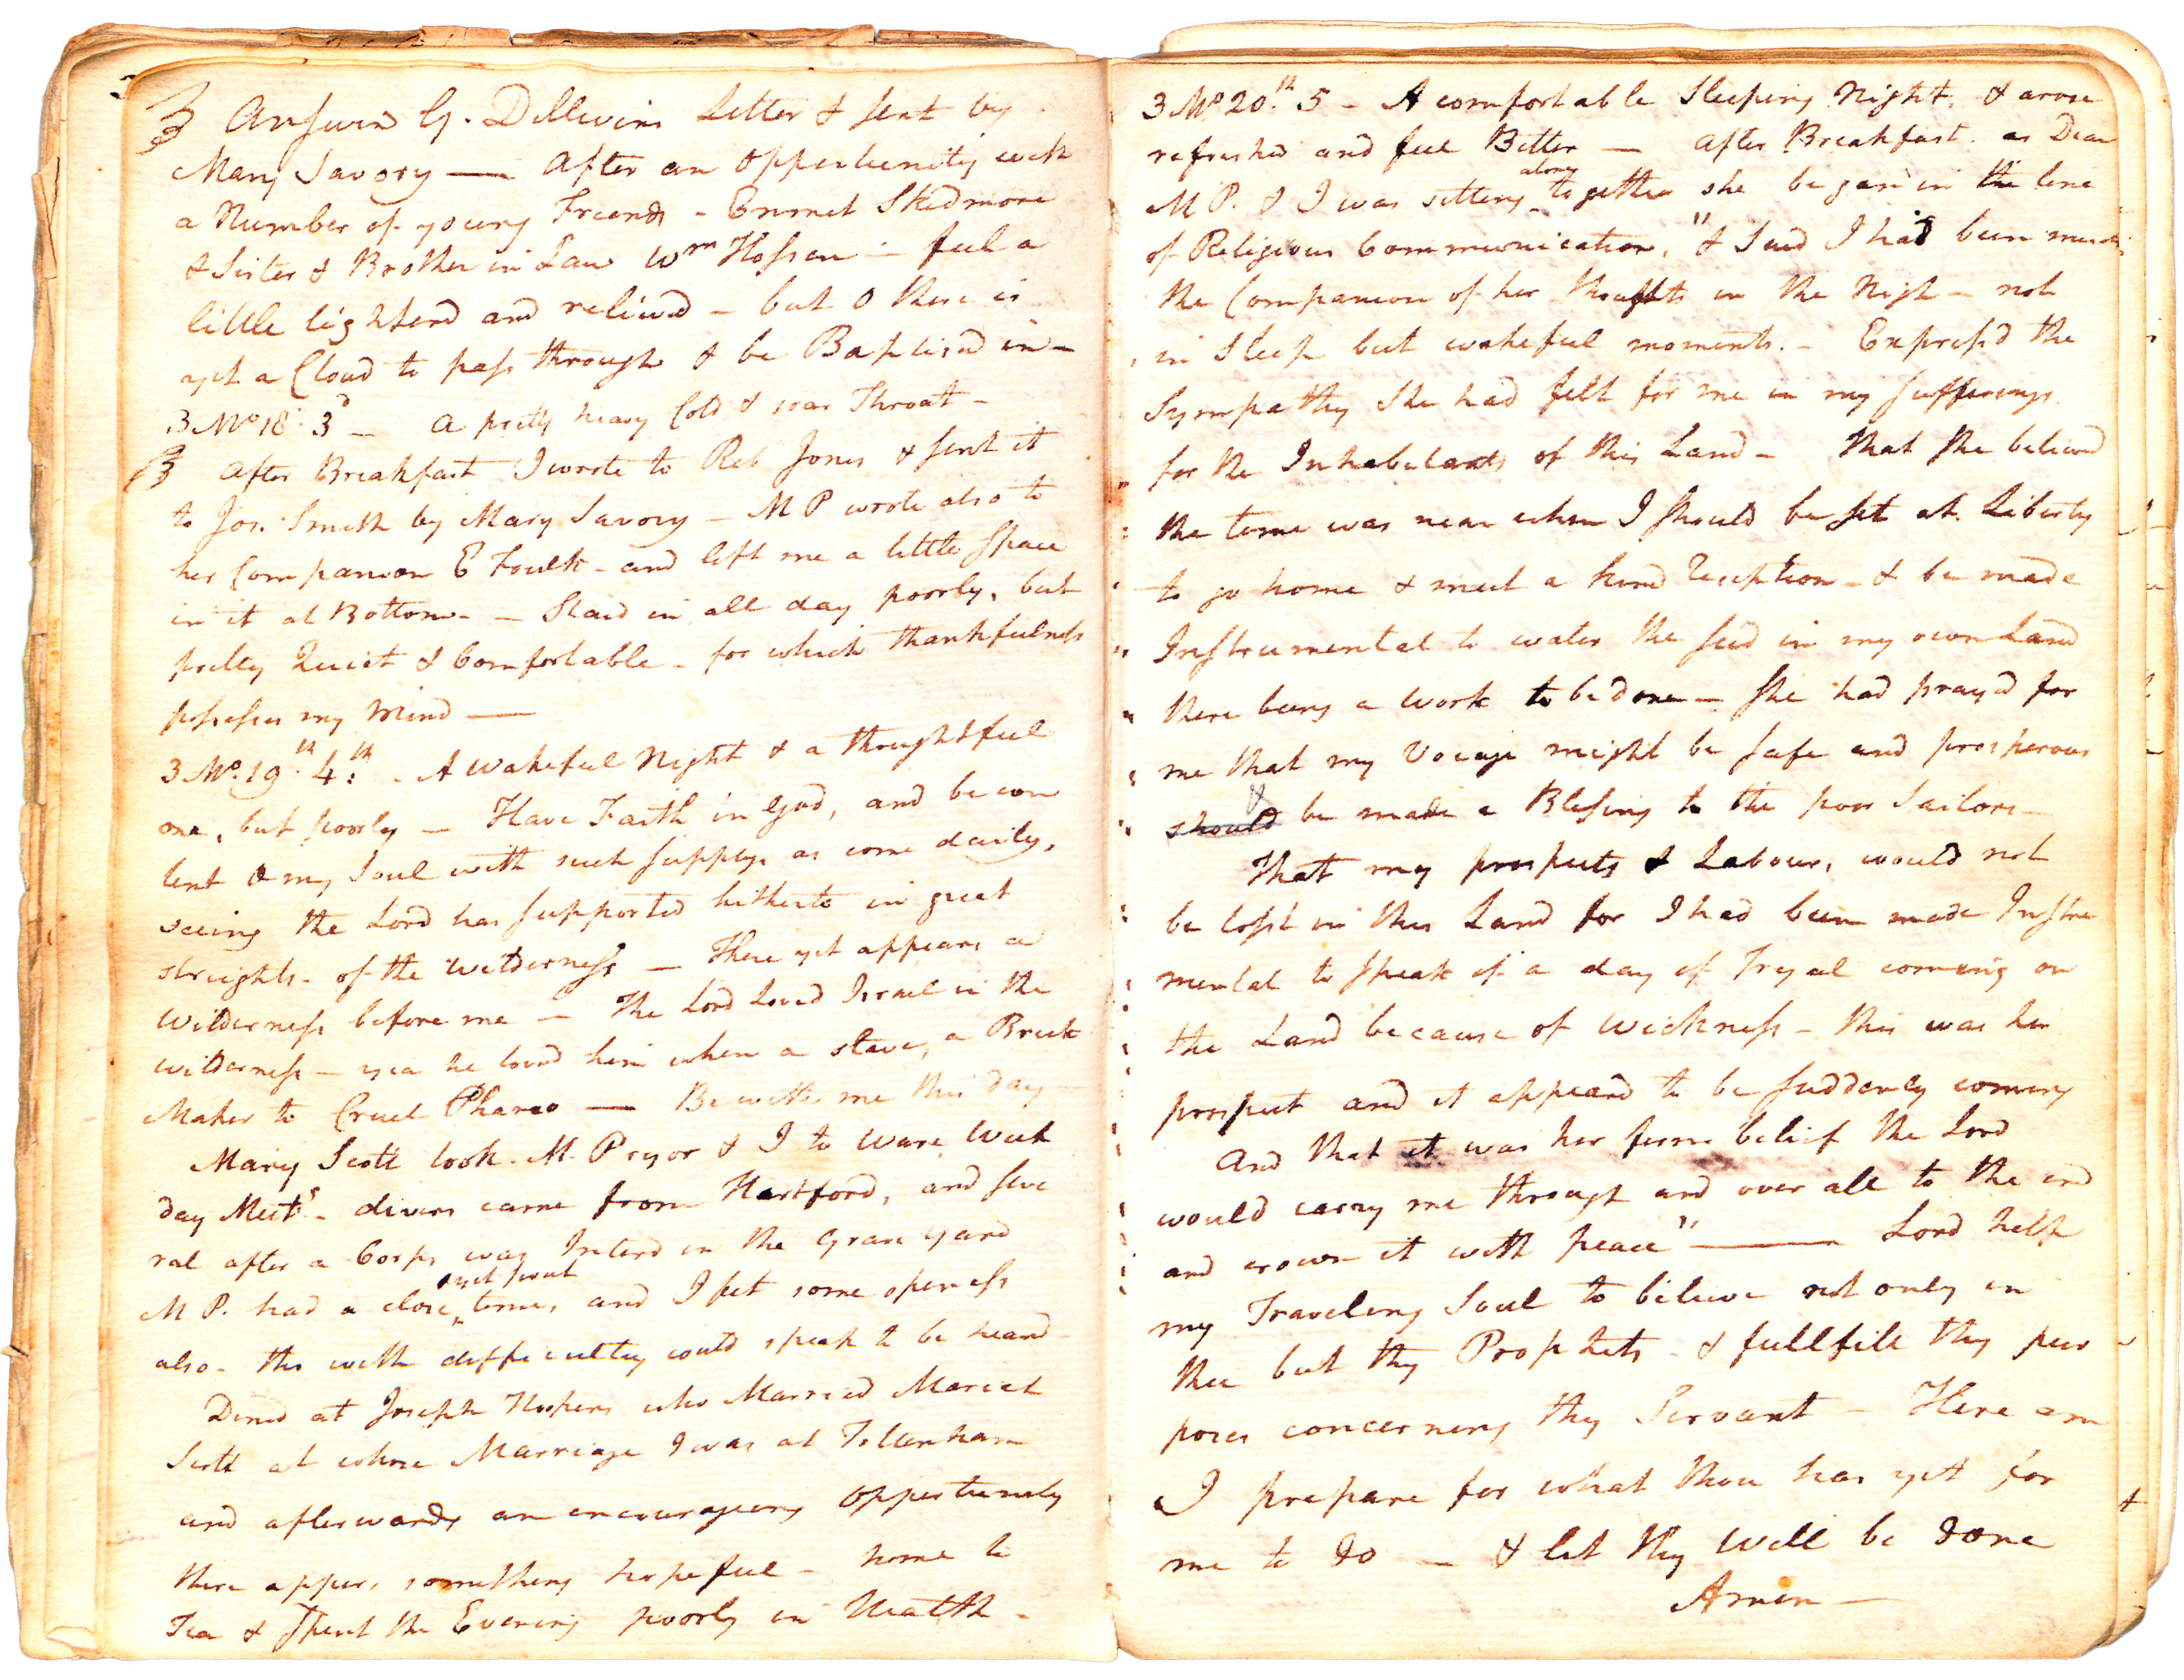 Answerd G. Dillwins Letter & sent by
Mary Savory — After an Opportunity with
a Number of young Friends - Emmet Skidmore
& Sister & Brother in Law Wm Hossen - feel a
little lightend and relievd - but O there is
yet a Cloud to pass through & be Baptisd in -
3 Mo 18. 3d - A pretty heavy Cold & soar Throat -
After Breakfast I wrote to Reb Jones & sent it
to Jos. Smith by Mary Savory - M P wrote also to
her Companion E Foulk - and left me a little Space
in it at Bottom - - Staid in all day poorly, but
pretty Quiet & Comfortable - for which thankfulness
possesses my Mind —
3 Mo. 19th. 4th. - A wakeful Night & a thoughtful
one, but poorly - Have Faith in God, and be con
tent O my Soul with such supplys as come daily,
seeing the Lord has supported hitherto in great
streights - of the wilderness - There yet appears a
Wilderness before me - The Lord Loved Israel in the
wilderness - yea he lovd him when a slave, a Brick
Maker to Cruel Pharao — Be with me this day -
Mary Scott took M. Pryor & I to Ware Week
day Meetg - divers came from Hartford, and seve
ral after a Corps was Interd in the Grave yard
M P. had a close yet sweet time, and I felt some openness
also - tho with difficulty could speak to be heard -
Dined at Joseph Hoopers who Married Mariah
Scott at whose Marriage I was at Tottenham
and afterwards an encouraging Oppertunity
there appears something hopeful - home to
Tea & Spent the Evening poorly in Health -
3 Mo 20.th 5 - A comfortable Sleeping Night, & arose
refreshed and feel Better - After Breakfast as Dear
M P. & I was sitting alone together she began in the line
of Religious Communication, "& Said I had been much
the Companion of her thoughts in the Nigh - not
in Sleep but wakeful moments. - Express'd the
Sympathy She had felt for me in my Sufferings
for the Inhabitants of this Land - that She believd
the time was near when I should be set at Liberty
to go home & meet a kind Reception - & be made
Instrumental to water the seed in my own Land
there being a work to be done - She had prayd for
me that my Voiage might be safe and prosperous
should & be made a Blessing to the poor Sailors -
That my prospects & Labours, would not
be lost in this Land for I had been made Instru
mental to speak of a day of Tryal coming on
the Land because of wickness - this was her
prospect and it appeard to be suddenly coming
And that it was her firm belief the Lord
would carry me through and over all to the end
and crown it with peace" — Lord help
my Traveling Soul to believe not only in
thee but thy Prophets - & fullfill thy pur
poses concerning thy Servant - Here am
I prepare for what thou has yet for
me to do - & let thy Will be done
Amen —